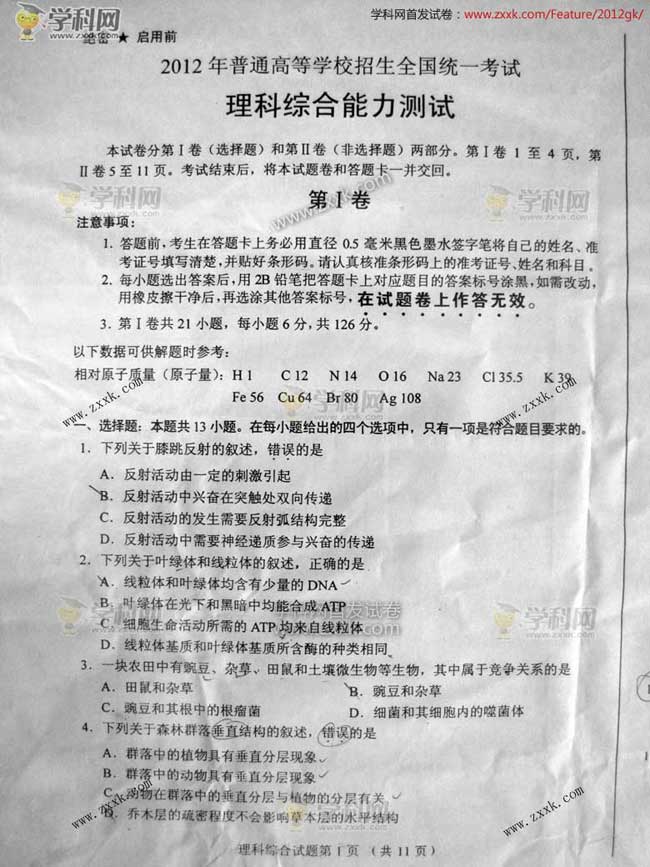 学科网
学科网首发试卷:www.zxxk.com/Feature/2012gk/
绝密★ 启用前
2012 年普通高等学校招生全国统一考试
理科综合能力测试
本试卷分第Ⅰ卷(选择题)和第Ⅱ卷(非选择题)两部分。第Ⅰ卷 1 至 4 页,第
Ⅱ卷 5 至 11 页。考试结束后,将本试题卷和答题卡一并交回。
第Ⅰ卷
注意事项:
1. 答题前,考生在答题卡上务必用直径 0.5 毫米黑色墨水签字笔将自己的姓名、准
考证号填写清楚,并贴好条形码。请认真核准条形码上的准考证号、姓名和科目。
2. 每小题选出答案后,用 2B 铅笔把答题卡上对应题目的答案标号涂黑,如需改动,
用橡皮擦干净后,再选涂其他答案标号,在试题卷上作答无效。
3. 第Ⅰ卷共 21 小题,每小题 6 分,共 126 分。
以下数据可供解题时参考:
相对原子质量(原子量):H 1 C 12 N 14 O 16 Na 23 Cl 35.5 K 39
Fe 56 Cu 64 Br 80 Ag 108
一、选择题:本题共 13 小题。在每小题给出的四个选项中,只有一项是符合题目要求的。
1. 下列关于膝跳反射的叙述,错误的是
A. 反射活动由一定的刺激引起
B. 反射活动中兴奋在突触处双向传递
C. 反射活动的发生需要反射弧结构完整
D. 反射活动中需要神经递质参与兴奋的传递
2. 下列关于叶绿体和线粒体的叙述,正确的是
A. 线粒体和叶绿体均含有少量的 DNA
B. 叶绿体在光下和黑暗中均能合成 ATP
C. 细胞生命活动所需的 ATP 均来自线粒体
D. 线粒体基质和叶绿体基质所含酶的种类相同
3. 一块农田中有豌豆、杂草、田鼠和土壤微生物等生物,其中属于竞争关系的是
A. 田鼠和杂草 B. 豌豆和杂草
C. 豌豆和其根中的根瘤菌 D. 细菌和其细胞内的噬菌体
4. 下列关于森林群落垂直结构的叙述,错误的是
A. 群落中的植物具有垂直分层现象
B. 群落中的动物具有垂直分层现象
C. 动物在群落中的垂直分层与植物的分层有关
D. 乔木层的疏密程度不会影响草本层的水平结构
理科综合试题第 1 页 (共 11 页)